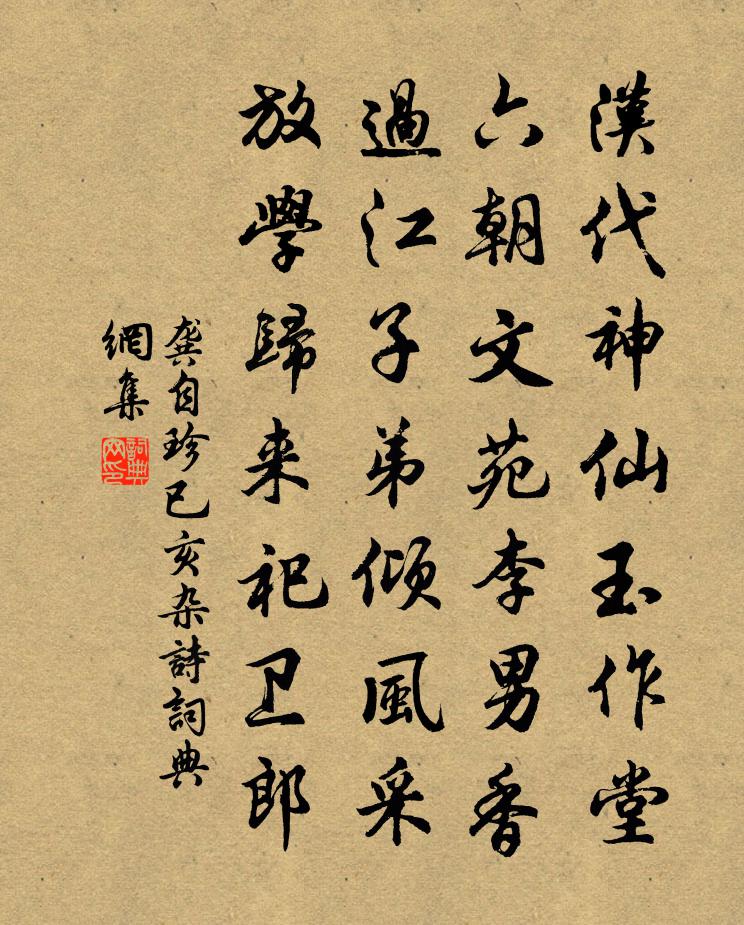 漢代神仙玉作堂
六朝文苑李男香
過江子弟傾風采
放學歸来祀卫郎
龔自珍己亥杂詩詞典
網集
詞典
网印